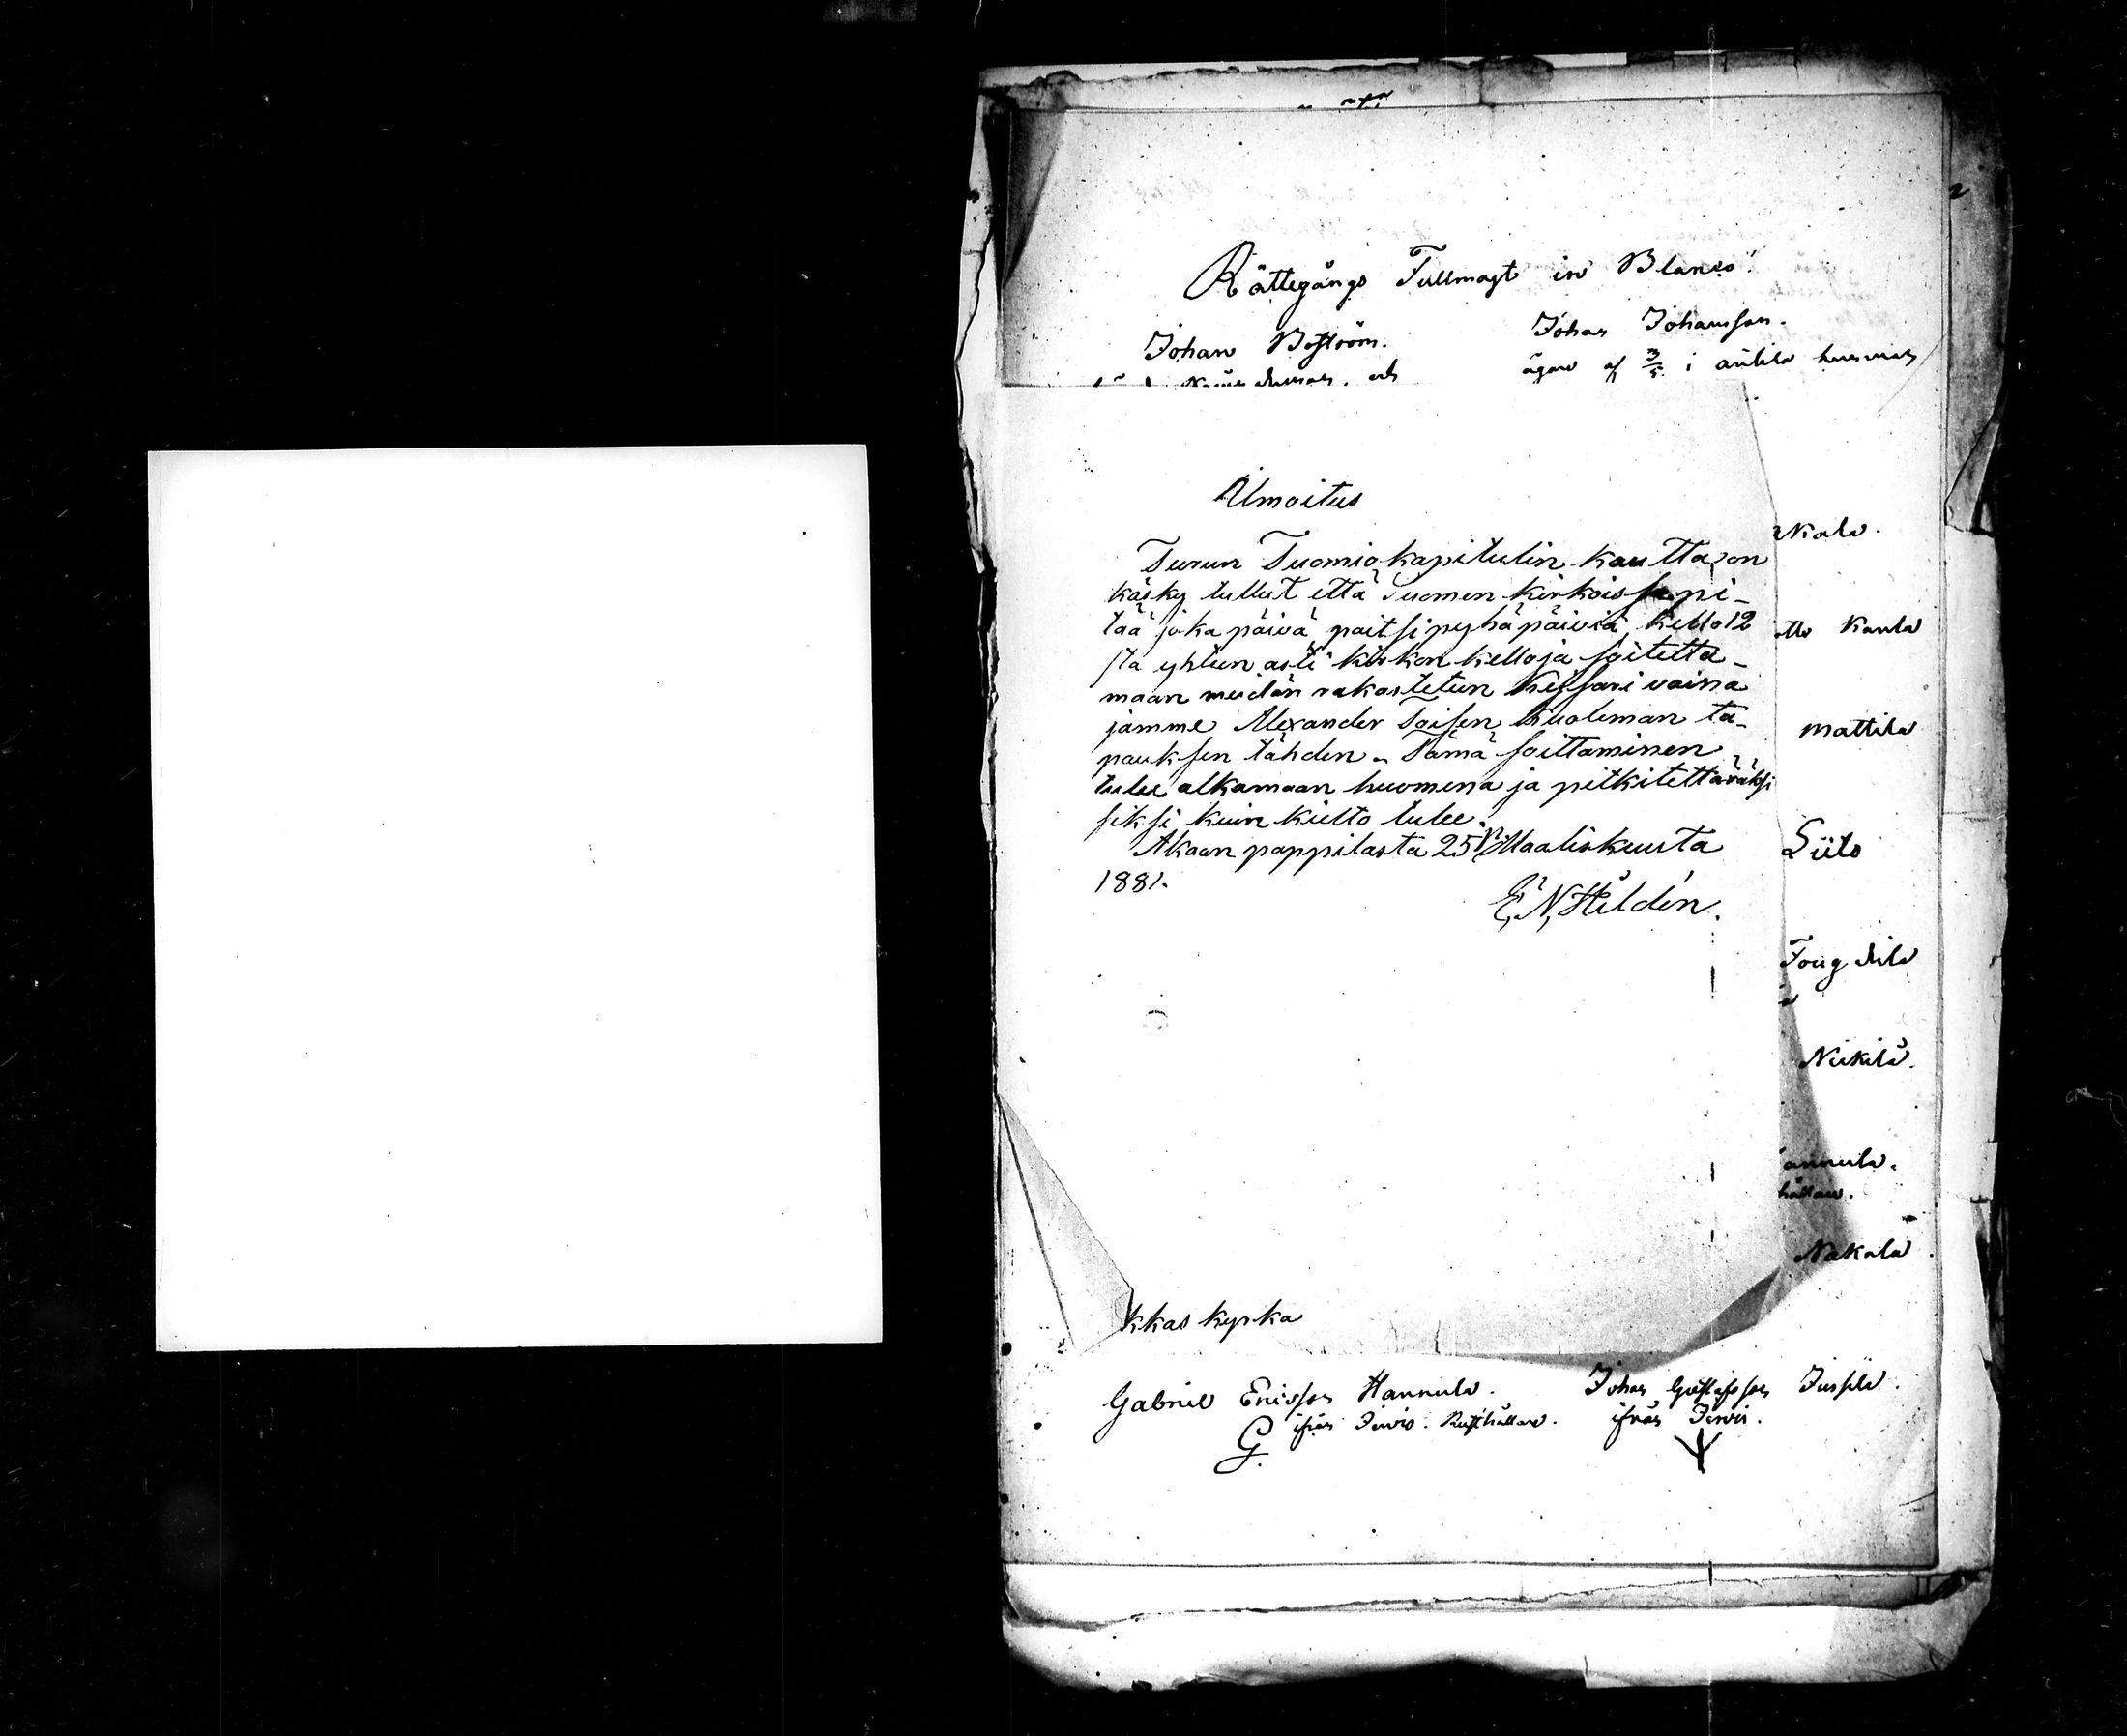 Rättegångs Fullmagt in Blanco
Johan Boström.
Johan Johansson.
ägare af 3/5 i antila hemman
Ilmoitus
Turun Tuomiokapitulin kautta on
käsky tullut että Suomen kirkoissa pi-
tää joka päivä, paitsi pyhäpäiviä, kello 12
sta yhteen asti kirkon kelloja soitetta-
maan meidän rakastetun Keisari vaina
jamme Alexander Toisen kuoleman ta-
pauksen tähden. Tämä soittaminen
tulee alkamaan huomena ja pitkitettäväksi
siksi kuin kielto tulee.
Akaan pappilasta 25 p. Maaliskuusta
1881.
E. N. Hildén.
Kaula
mattila
Fougdila
Nikilä.
annula.
hållare.
Nakala.
kkas kyrka
Gabriel Ericsson Hannula.
ifrån Jervis. Rusthållare.
G.
Johan Gustafsson Jussila.
ifrån Jervis.